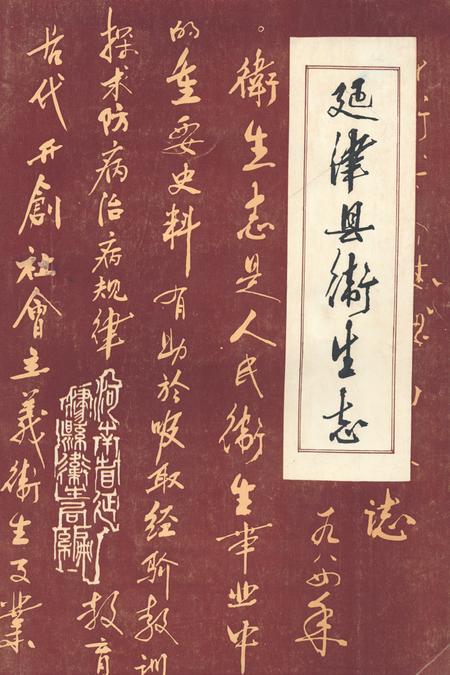 延津县衛生志
誌
一九八四年
。衛生志是人民衛生事业中
的重要史料有助於吸取经验教训
探求防病治病规律
教育
古代开創社會主義衛生事業
河南省延
津縣衛生局編